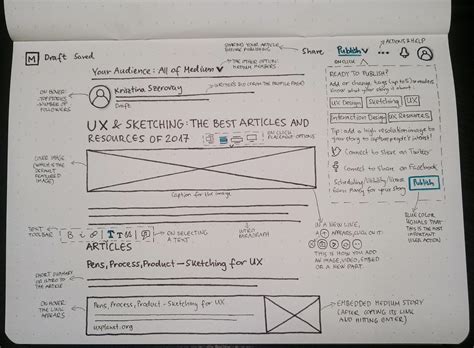 SHARING YOUR ARTICLE
BEFORE PUBLISHING
ACTIONS & HELP
M Draft Saved
Share Publish
THE OTHER OPTION:
MEDIUM MEMBERS
ON CLICK
Your Audience: All of Medium
WRITER'S BIO (FROM THE PROFILE PAGE)
ON HOVER:
TOP STORIES
NUMBER OF
FOLLOWERS
Kristina Szerovay
Draft
READY TO PUBLISH?
Add or change tags (up to 5) so readers
know what your story is about
UX Design Sketching UX
Interaction Design UX Resources
Tip: add a high resolution image to
your story to capture people's interest
Connect to share on Twitter
Connect to share on Facebook
Publish
UX & SKETCHING: THE BEST ARTICLES AND
RESOURCES OF 2017
ON CLICK
PLACEMENT OPTIONS
COVER IMAGE
(WHICH IS THE
DEFAULT
FEATURED IMAGE)
Caption for the image
BLUE COLOR
SIGNALS THAT
THIS IS THE MOST
IMPORTANT
USER ACTION
TEXT
TOOLBAR
B i T T
ON SELECTING
A TEXT
INTRO
PARAGRAPH
IN A NEW LINE,
A + APPEARS, CLICK ON IT
THIS IS HOW YOU ADD
AN IMAGE, VIDEO, EMBED
OR A NEW PART.
ARTICLES
Pens, Process, Product – Sketching for UX
SHORT SUMMARY
OR INTRO TO
THE ARTICLE
ON HOVER
THE LINK
APPEARS
Pens, Process, Product – Sketching for UX
uxplanet.org
EMBEDDED MEDIUM STORY
(AFTER COPYING ITS LINK
AND HITTING ENTER)